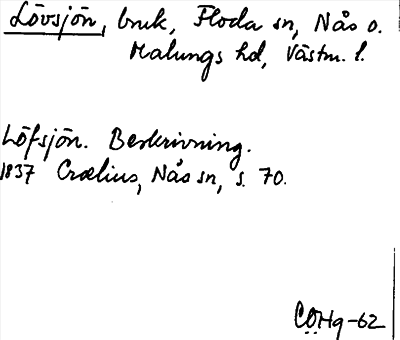 Lövsjön, bruk, Floda sn, Nås o.
Malungs hd, Västm. l.
Löfsjön. Beskrivning.
1837 Crælius, Nås sn, s. 70.
CÖHg-62